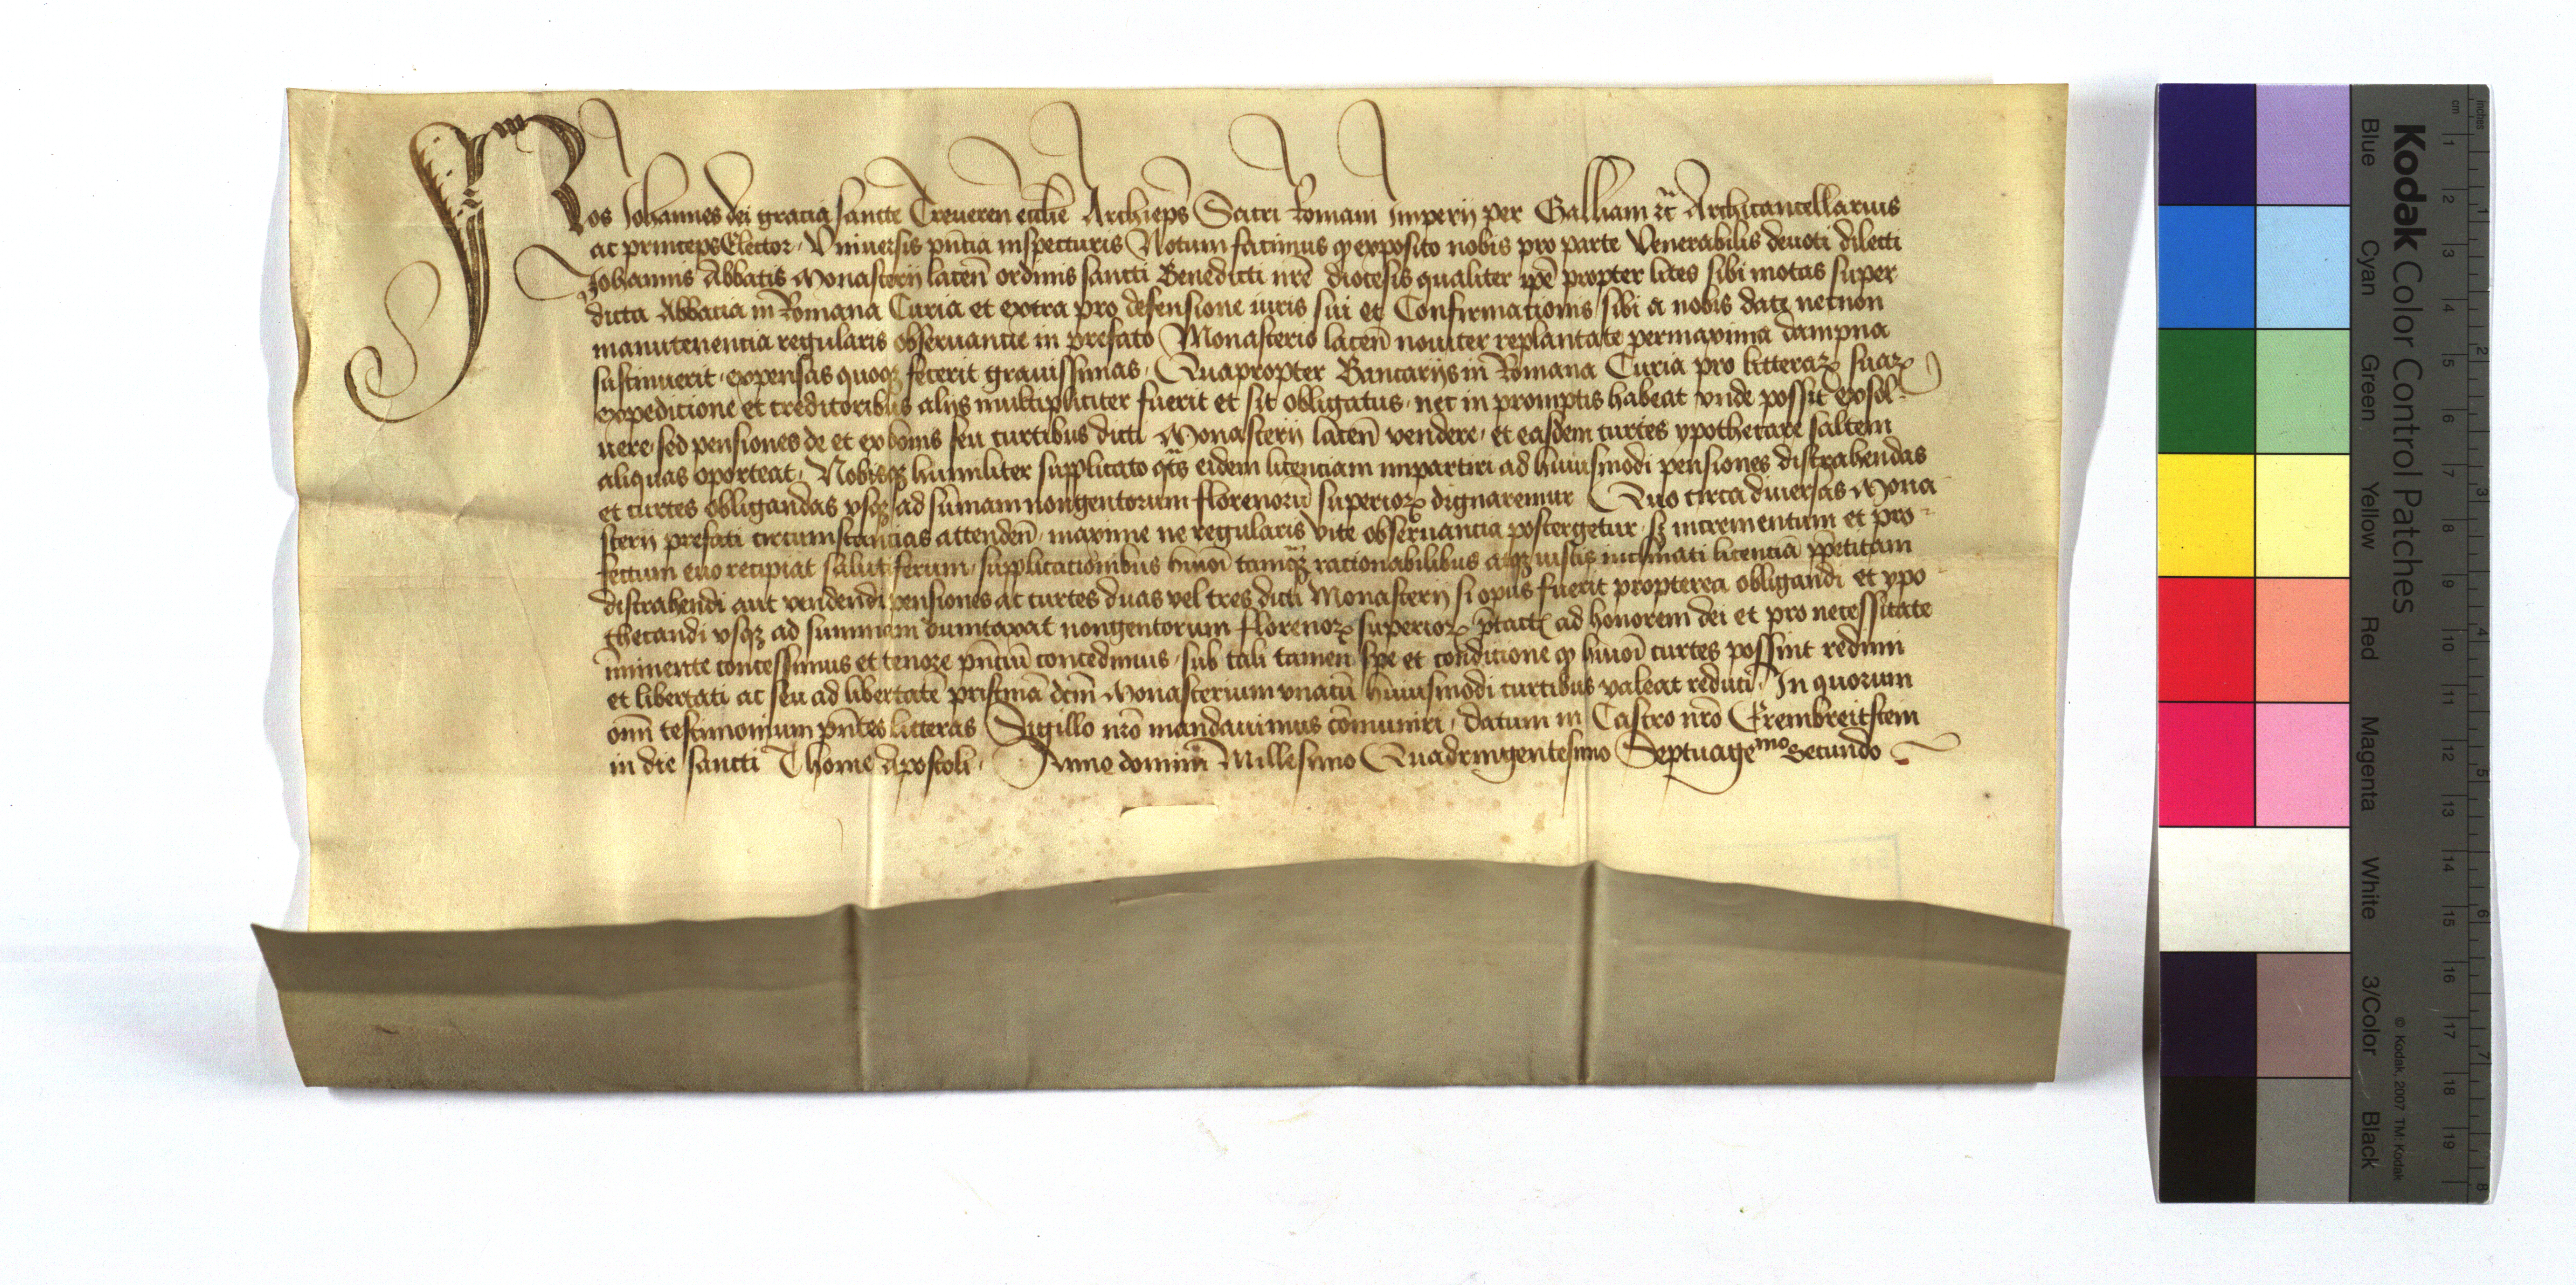 Nos Johannes dei gracia sancte Treueren ecclie Archiep̄s Sacri Romani Imperij per Galliam ꝛc̄ Archicancellarius
ac princeps Elector, Vniuersis pn̄tia inspecturis Notum facimus ꝙ exposito nobis pro parte Venerabilis deuoti dilecti
Johannis Abbatis Monasterij lacen̄ ordinis sancti Benedicti nr̄e diocesis qualiter ip̄e propter lites sibi motas super
dicta Abbatia in Romana Curia et extra pro defensione iuris sui et Confirmationis sibi a nobis date necnon
manutenencia regularis obseruancie in prefato Monasterio lacen̄ nouiter replantate permaxima dampna
sustinuerit, expensas quoqꝫ fecerit grauissimas, Quapropter Bancarijs in Romana Curia pro litteraꝝ suaꝝ
expedicione et creditoribus alijs multipliciter fuerit et sit obligatus, nec in promptis habeat vnde possit exsol-
uere, sed pensiones de et ex bonis seu curtibus dicti Monasterij lacen̄ vendere, et easdem curtes ypothecare saltem
aliquas oporteat, Nobisqꝫ humiliter supplicato qt̄s eidem licenciam impartiri ad huiusmodi pensiones distrahendas
et curtes obligandas vsqꝫ ad sum̄am nongentorum florenorū superioꝝ dignaremur Quo circa diuersas Mona-
sterij prefati circumstancias attenden̄, maxime ne regularis vite obseruancia postergetur, sꝫ incrementum et pro-
fectum euo recipiat salutiferum, supplicationibus hmōi tamqꝫ racionabilibus atqꝫ iustis inclinati licenciā pp̄etitam
distrahendi aut vendendi pensiones ac curtes duas vel tres dicti Monasterij si opus fuerit propterea obligandi et ypo-
thecandi vsqꝫ ad summam dumtaxat nongentorum florenoꝝ superioꝝ p̄tact ad honorem dei et pro necessitate
im̄inente concessimus et tenore pn̄ciū concedimus, sub tali tamen spe et condicione ꝙ hmōi curtes possint redimi
et libertati ac seu ad libertatē pristinā dcm̄ Monasterium vnacū huiusmodi curtibus valeat reduci, In quorum
om̄i testimonium pn̄tes litteras Sigillo nr̄o mandauimus cōmuniri, datum in Castro nr̄o Erembreitstein
in die sancti Thome Apostoli, Anno domini Millesimo Quadringentesimo Septuagemo Secundo
Kodak Color Control Patches
Blue Cyan Green Yellow Red Magenta White 3/Color Black
© Kodak, 2007 TM: Kodak
cm 1 2 3 4 5 6 7 8 9 10 11 12 13 14 15 16 17 18 19
inches 1 2 3 4 5 6 7 8